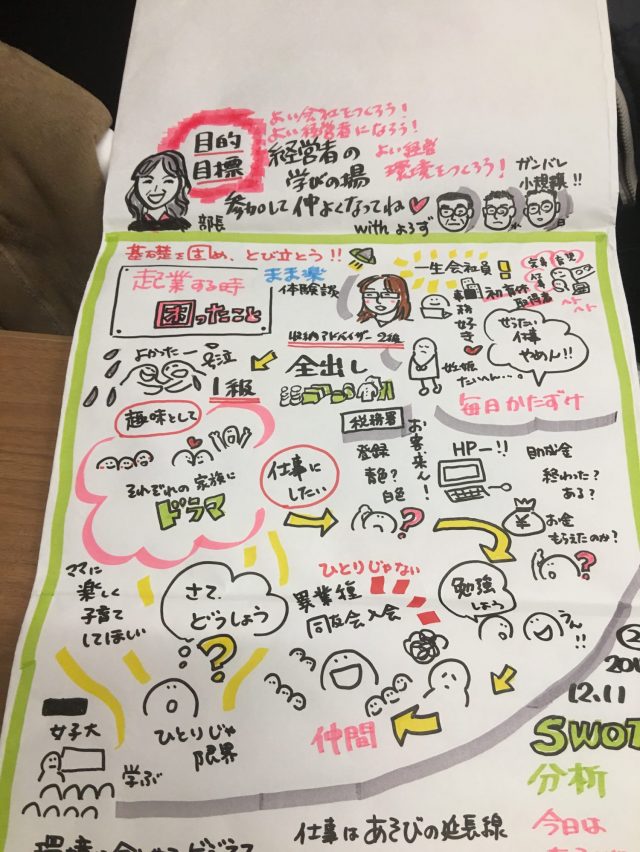 よい会社をつくろう!
よい経営者になろう!
よい経営
環境をつくろう!
目的
目標
経営者の
学びの場
ガンバレ
小規模!!
参加して仲よくなってね
部長
with よろず
基礎を固め、とび立とう!!
起業する時
困ったこと
まま楽
体験談
一生会社員!
事務
女子寺
初育休
取得者
ぜったい
仕事
やめん!!
収納アドバイザー2級
よかったー
号泣
1級
全出し
妊娠
たいへん…。
毎日かたずけ
趣味として
税務署
それぞれの家族に
ドラマ
仕事に
したい
登録
青色?
白色
お客来ん!
HPー!!
助成金
終わった?
ある?
お金
もらえたのか?
ママに
楽しく
子育て
してほしい
さて、
どうしよう
ひとりじゃない
異業種
同友会入会
勉強
しよう
うん!!
女子大
学ぶ
ひとりじゃ
限界
仲間
②
12.11
SWOT
分析
仕事はあそびの延長線
今日は